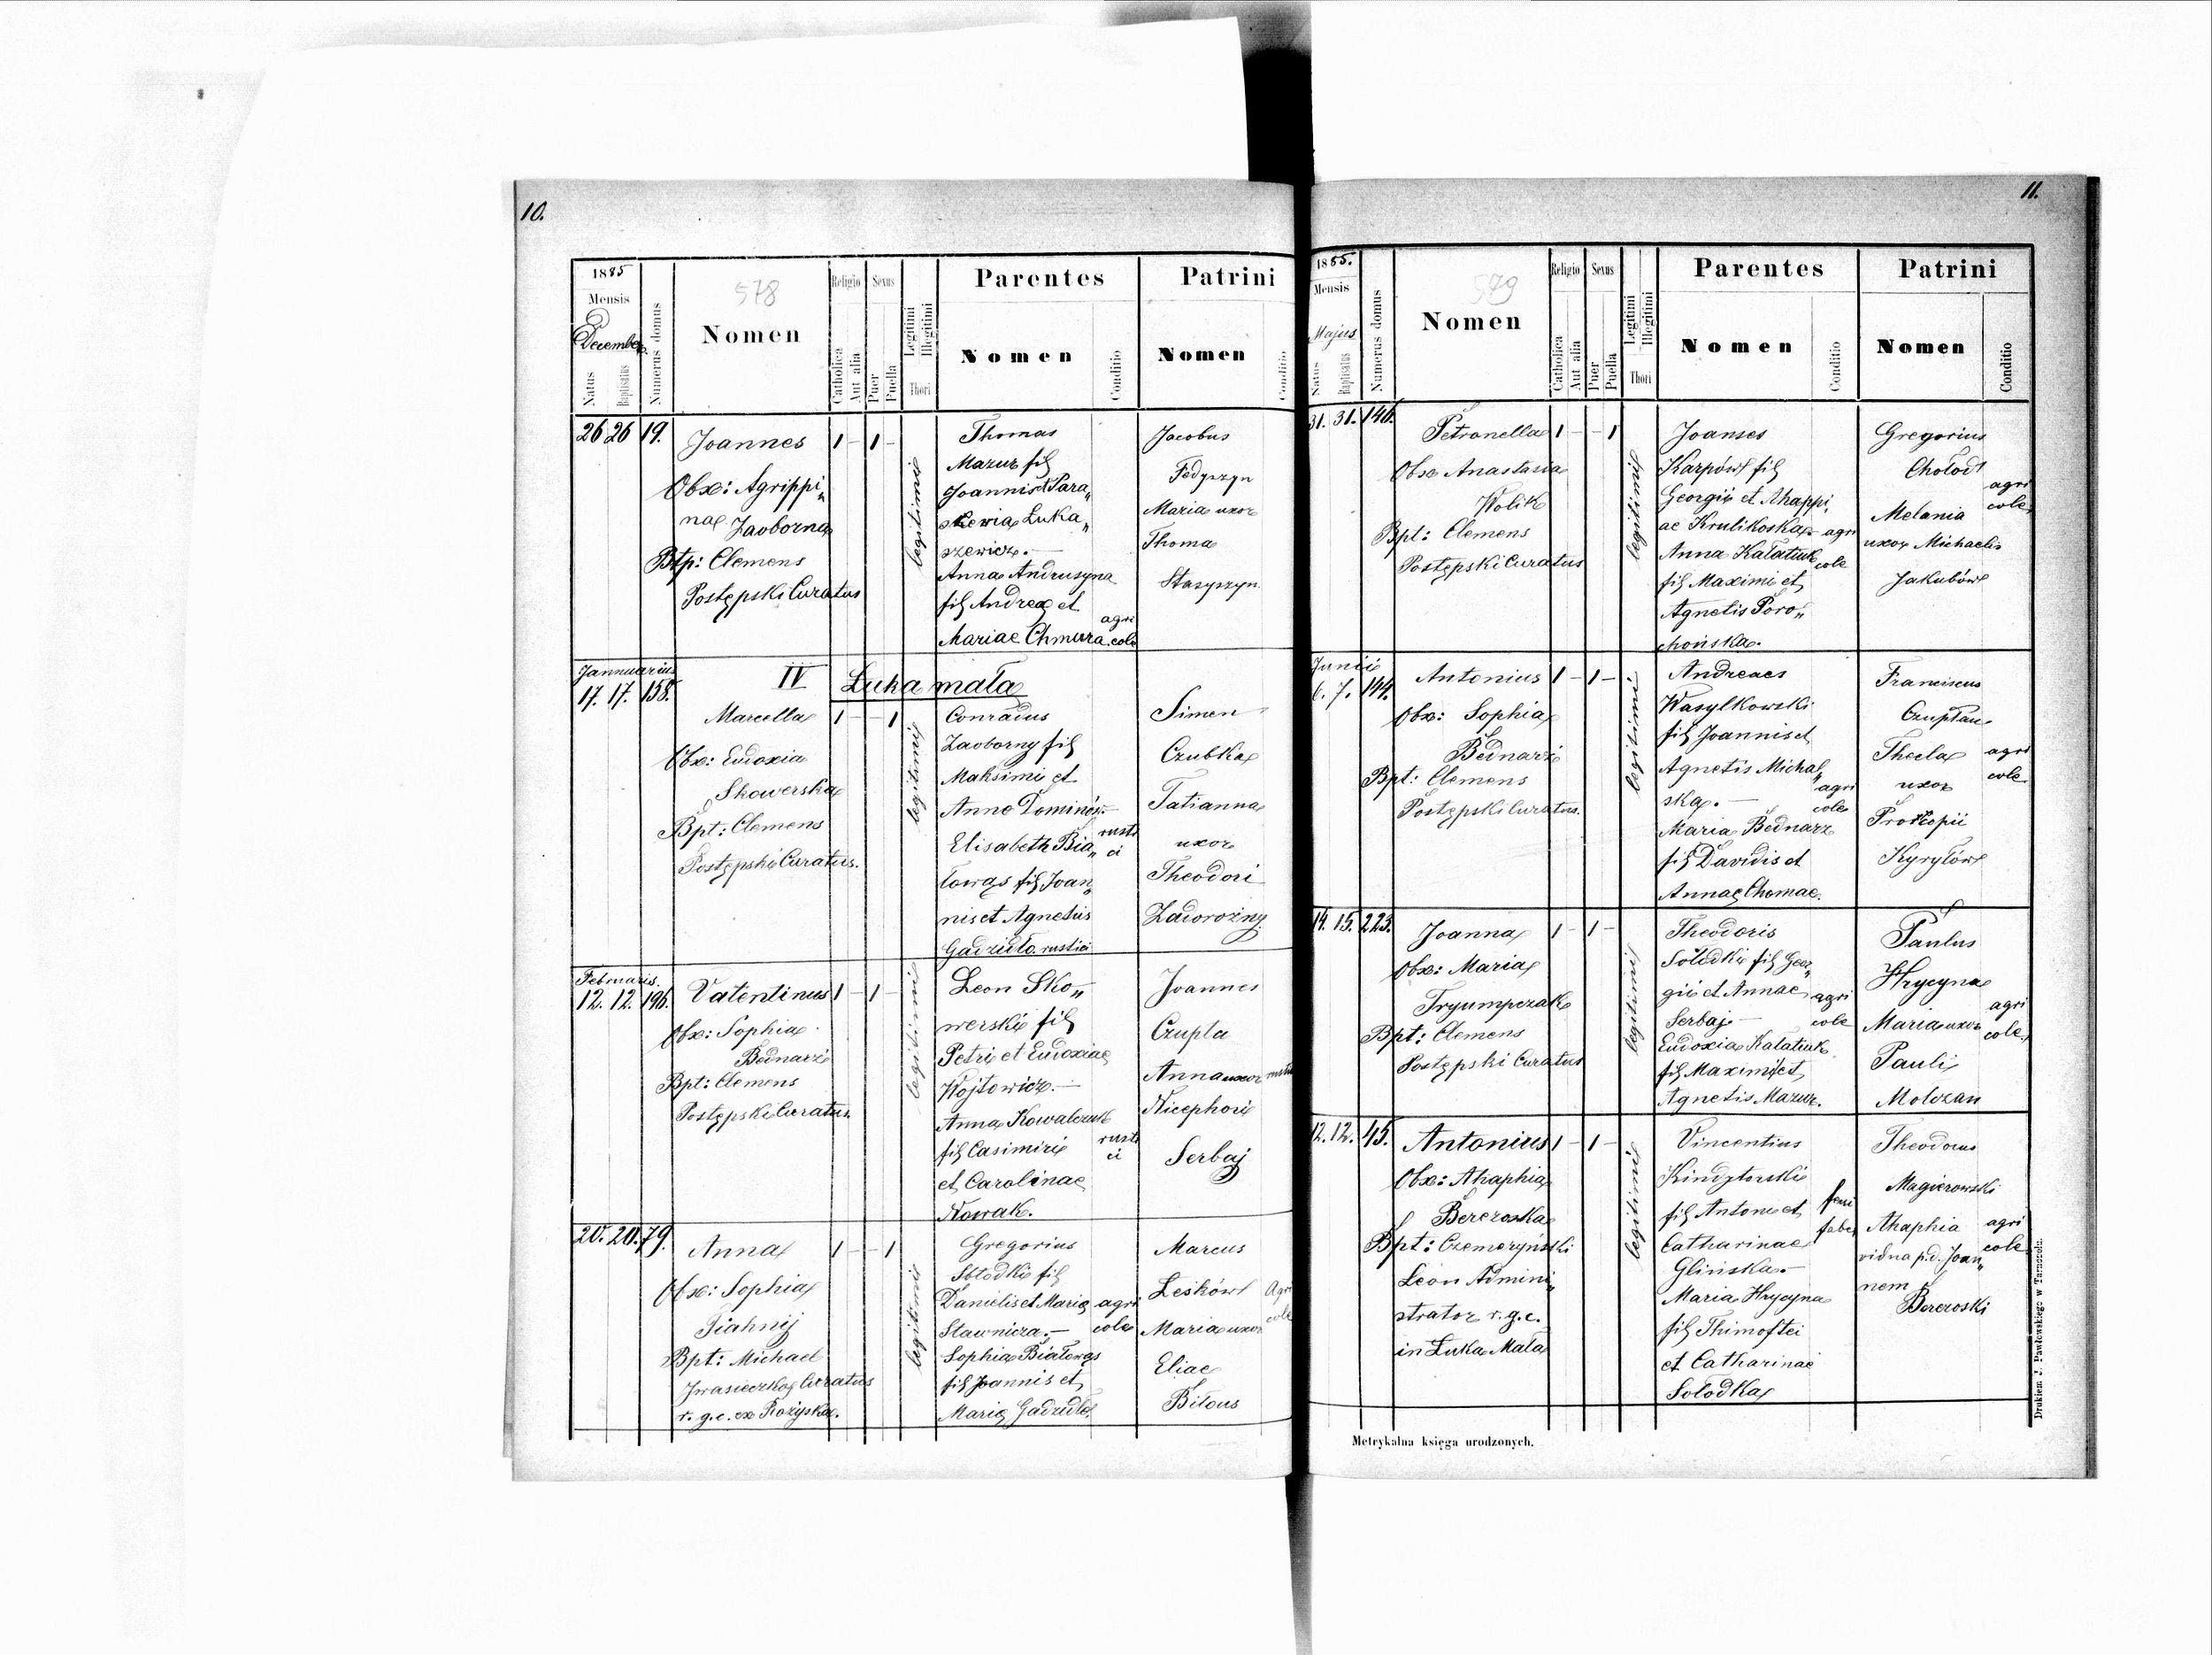 10.
1885
Mensis
December
Natus
Baptisatus
Numerus domus
578
Nomen
Religio
Catholica
Aut alia
Sexus
Puer
Puella
Legitimi
Illegitimi
Thori
Parentes
Nomen
Conditio
Patrini
Nomen
Conditio
26 26 19.
Joannes
Obx: Agrippi„
nae Zaoborna
Btp: Clemens
Postępski Curatus
1 - 1 -
legitimi
Thomas
Mazur fil
Joannis et Para„
skewia Łuka„
szewicz.—
Anna Andrusyna
fil Andreae et
Mariae Chmura
agri
cole
Jacobus
Fedyszyn
Maria uxor
Thoma
Stasyszyn
Jannuarius
17. 17. 158.
IV Łuka mała
Marcella
Obx: Eudoxia
Skowerska
Bpt: Clemens
Postępski Curatus.
1 - - 1
legitimi
Conradus
Zaoborny fil
Maksimi et
Anna Dominów.—
Elisabeth Bia„
łowąs fil Joan„
nis et Agnetis
Gadzidło rustici
rusti
ci
Simen
Czubka
Tatianna
uxor
Theodori
Zaworożny
Februaris.
12. 12. 196.
Valentinus
Obx: Sophia
Bednarz
Bpt: Clemens
Postępski Curatus.
1 - 1 -
legitimi
Leon Sko„
werski fil
Petri et Eudoxiae
Wojtowicz.—
Anna Kowalczuk
fil Casimiri
et Carolinae
Nowak.
rusti
ci
Joannes
Czupla
Anna uxor
Nicephori
Serbaj
20. 20. 79.
Anna
Obx: Sophia
Piahnij
Bpt: Michael
Iwasieczko Curatus
r. g. c. ex Rożyska.
1 - - 1
legitimi
Gregorius
Sołodki fil
Danielis et Maria
Sławnicza.—
Sophia Białowąs
fil Joannis et
Maria Gadzidło
agri
cole
Marcus
Leśków
Maria uxor
Eliae
Biłous
Agri
cole
11.
1885.
Mensis
Majus
Natus
Baptisatus
Numerus domus
579
Nomen
Religio
Catholica
Aut alia
Sexus
Puer
Puella
Legitimi
Illegitimi
Thori
Parentes
Nomen
Conditio
Patrini
Nomen
Conditio
31. 31. 146.
Petronella
Obx Anastasia
Wolik
Bpt: Clemens
Postępski Curatus
1 - - 1
legitimi
Joannes
Karpów fil
Georgii et Ahappi„
ae Krulikoska.—
Anna Kałatiuk
fil Maximi et
Agnetis Poro„
chońska.
agri
cole
Gregorius
Chołod
Melania
uxor Michaelis
Jakubów
agri
cole
Junii
6. 7. 144.
Antonius
Obx: Sophia
Bednarz
Bpt: Clemens
Postępski Curatus.
1 - 1 -
legitimi
Andreaes
Wasylkowski
fil Joannis et
Agnetis Michal„
ska.—
Maria Bednarz
fil Davidis et
Annae Chomae.
agri
cole
Franciscus
Czupłau
Thecla
uxor
Prokopii
Kyryłów
agri
cole
14. 15. 223.
Joanna
Obx: Maria
Tryumpczak
Bpt: Clemens
Postępski Curatus
1 - 1 -
legitimi
Theodoris
Sołodki fil Geor„
gii et Annae
Serbaj—
Eudoxia Kalatiuk
fil Maximi et
Agnetis Mazur.
agri
cole
Paulus
Hrycyna
Maria uxor
Pauli
Molozan
agri
cole
12. 12. 45.
Antonius
Obx: Ahaphia
Berezoska
Bpt: Czemeryński
Leon Admini„
strator r. g. c.
in Łuka Mała
1 - 1 -
legitimi
Vincentius
Kindytorski
fil Antoni et
Catharinae
Glińska.—
Maria Hrycyna
fil Thimoftei
et Catharinae
Sołodka
ferri
faber
Theodorus
Magierowski
Ahaphia
vidna p. d. Joan„
nem
Berezoski
agri
cole
Metrykalna księga urodzonych.
Drukiem J. Pawłowskiego w Tarnopolu.